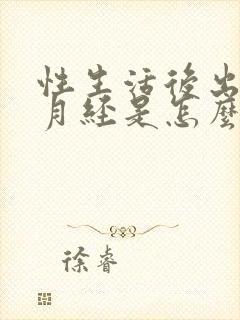 性生活後出
月經是怎麼
徐睿